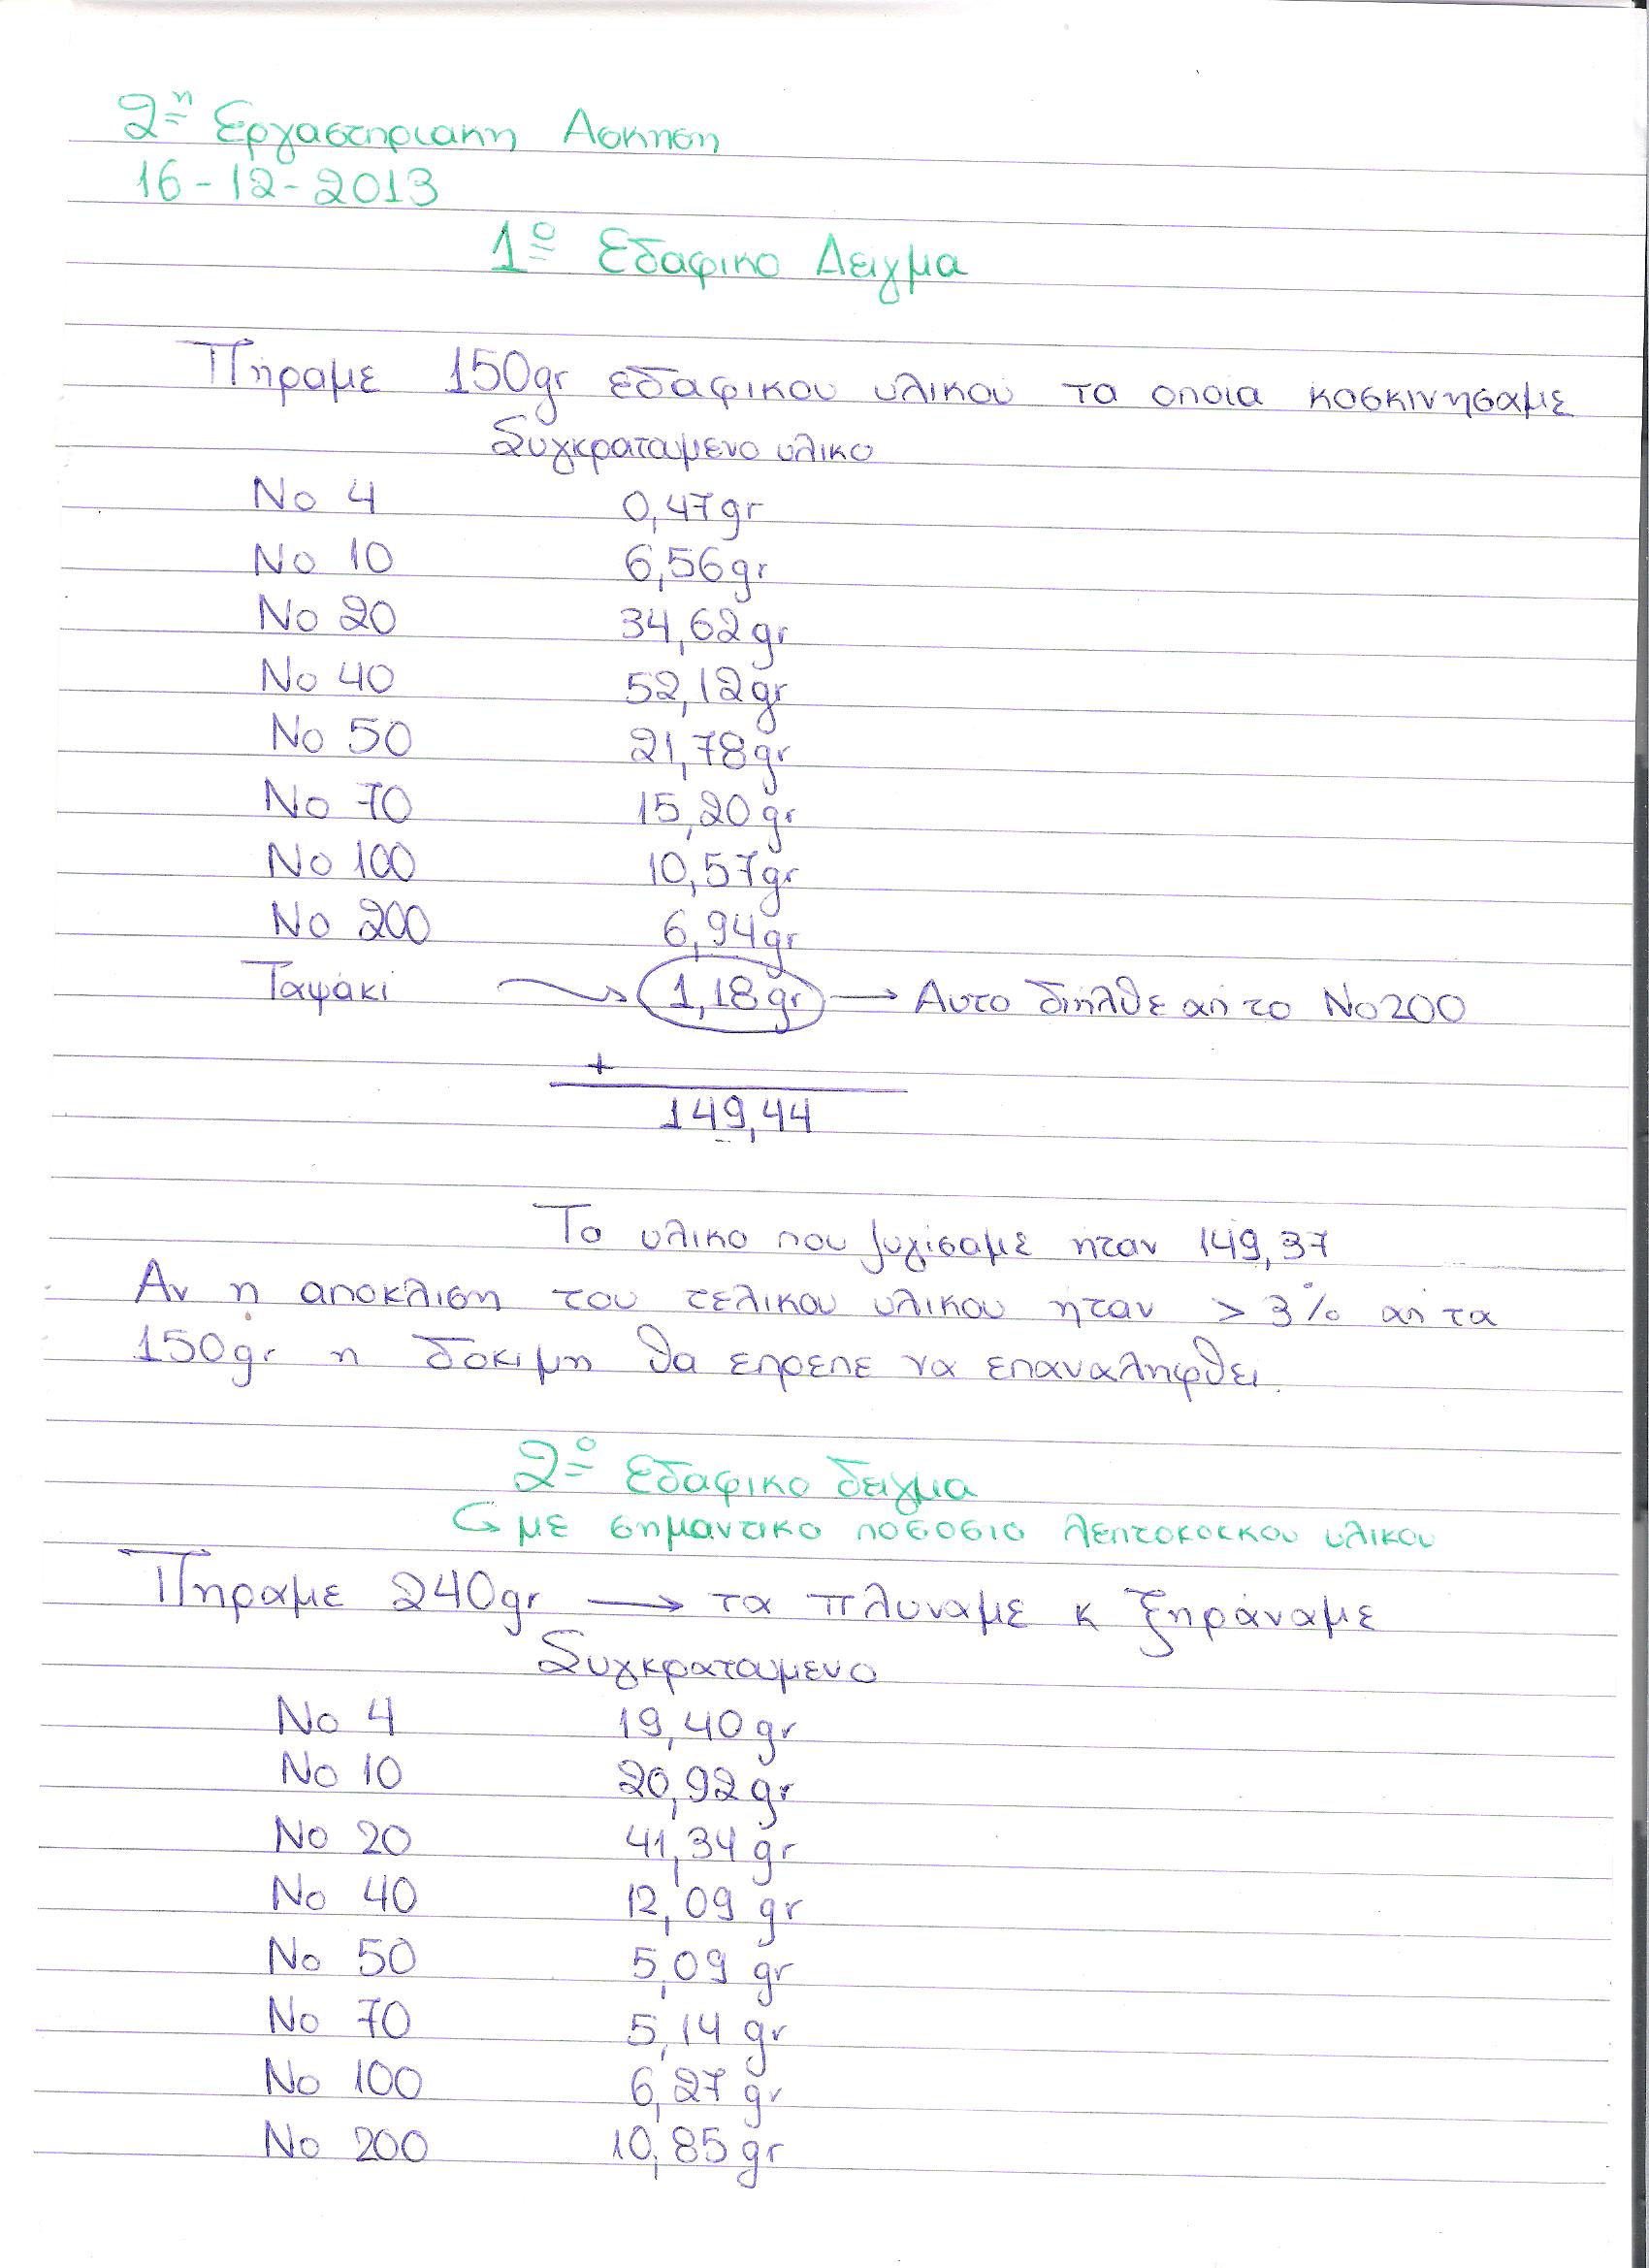 2η Εργαστηριακη Ασκηση
16-12-2013
1ο Εδαφικο Δειγμα
Πήραμε 150gr εδαφικου υλικου τα οποια κοσκινησαμε
Συγκραταμενο υλικο
No 4 0,47gr
No 10 6,56gr
No 20 34,62gr
No 40 52,12gr
No 50 21,78gr
No 70 15,20gr
No 100 10,57gr
No 200 6,94gr
Ταψάκι → 1,18gr → Αυτο διήλθε απ το No200
+
149,44
Το υλικο που ζυγίσαμε ηταν 149,37
Αν η αποκλιση του τελικου υλικου ήταν > 3% απ τα
150gr η δοκιμη θα επρεπε να επαναληφθει.
2ο Εδαφικο δειγμα
↳ με σημαντικο ποσοσιο λεπτοκοκκου υλικου
Πηραμε 240gr → τα πλυναμε κ ξηράναμε
Συγκραταμενο
No 4 19,40gr
No 10 20,92gr
No 20 41,34gr
No 40 12,09 gr
No 50 5,09 gr
No 70 5,14 gr
No 100 6,27 gr
No 200 10,85gr